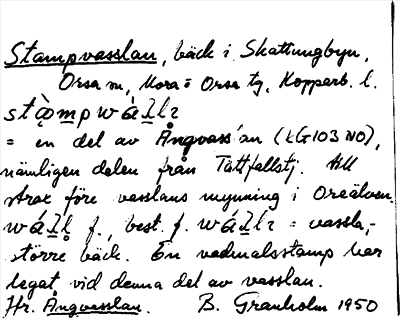 Stampvasslan, bäck i Skattungbyn,
Orsa sn, Mora o Orsa tg, Kopparb. l.
= en del av Ångvass'an (LG103 NO),
nämligen delen från Tättfallstj. till
strax före vasslans mynning i Oreälven.
f., best. f. = vassla,-
större bäck. En vadmalsstamp har
legat vid denna del av vasslan.
Hr. Angvasslan. B. Granholm 1950